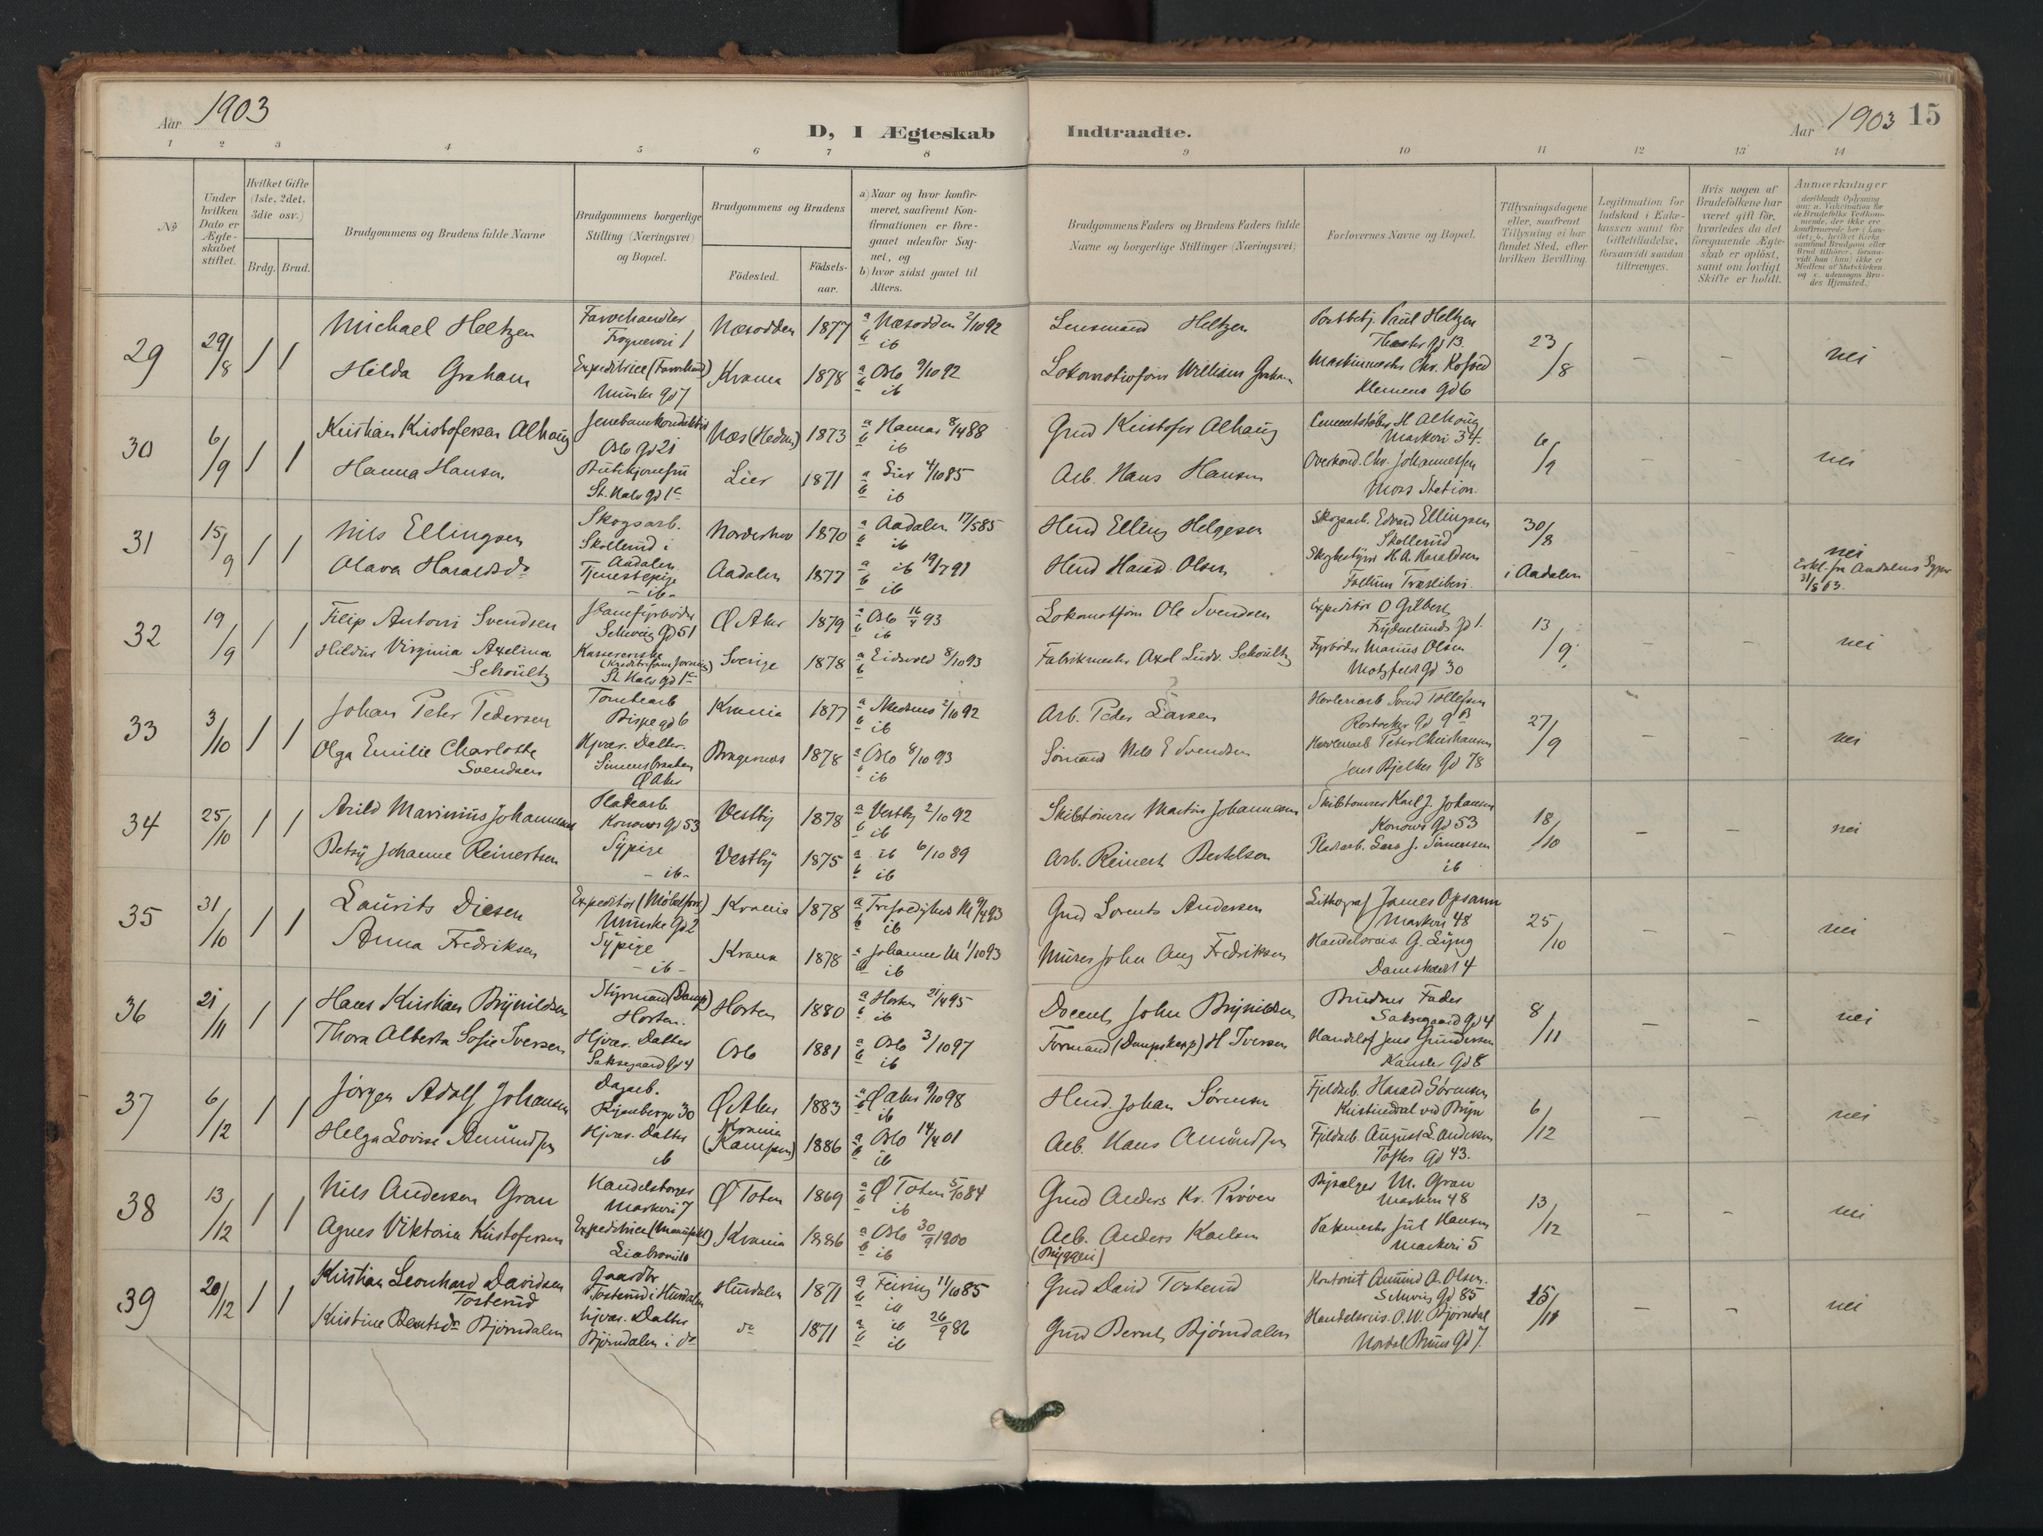 Aar 1903
D, I Ægteskab
Indtraadte.
Aar 1903 15
1 2 3 4 5 6 7 8 9 10 11 12 13 14
No
Under hvilken Dato er Ægteskabet stiftet.
Hvilket Gifte (1ste, 2det, 3die osv.)
Brdg. Brud.
Brudgommens og Brudens fulde Navne
Brudgommens borgerlige Stilling (Næringsvei) og Bopæl.
Brudgommens og Brudens
Fødested.
Fødselsaar.
a) Naar og hvor konfirmeret, saafremt Konfirmationen er foregaaet udenfor Sognet, og
b) hvor sidst gaaet til Alters.
Brudgommens Faders og Brudens Faders fulde Navne og borgerlige Stillinger (Næringsvei)
Forlovernes Navne og Bopæl.
Tillysningsdagene eller, saafremt Tillysning ei har fundet Sted, efter hvilken Bevilling.
Legitimation for Indskud i Enkekassen samt for Giftetilladelse, forsaavidt saadan tiltrænges.
Hvis nogen af Brudefolkene har været gift før, hvorledes da det foregaaende Ægteskab er opløst, samt om lovligt Skifte er holdt.
Anmærkninger
29 29/8 1 1 Michael Heltzen Farvehandler Næsodden 1877 a Næsodden 2/10 92 Lensmand Heltzen Paul Heltzen 23/8 - - nei
Frognervei 1 b ib Theater gd 13
Hilda Graham Expeditrice Krania 1878 a Oslo 9/10 92 William Graham
Munke gd 7 b ib Klemens gd 6
30 6/9 1 1 Kristian Kristofersen Alhaug Næs (Hedm) 1873 a Hamar 8/4 88 Gmd Kristofer Alhaug H Alhaug 6/9 - - nei
Oslo Gd 21 b ib Markvei 34.
Hanna Hansen Lier 1871 a Lier 4/10 85 Arb. Hans Hansen Overkond. Chr. Johannessen
St. Halv gd 1c b ib Moss Station.
31 15/9 1 1 Nils Ellingsen Skogsarb. Norderhov 1870 a Aadalen 17/5 85 Hmd Elling Helgesen Skogsarb. Edvard Ellingsen 30/8 - - nei
Skollerud i Aadalen b ib Skollerud
Olava Haraldsdr Tjenestepige Aadalen 1877 a ib 19/7 91 Hmd Harald Olsen H. A. Haraldsen i Aadalen
-ib- b ib Follum Træsliberi. 31/8 03.
32 19/9 1 1 Filip Antoni Svendsen Ø Aker 1879 a Oslo 16/4 93 Lokomotfører Ole Svendsen Expeditør O Gilbert 13/9 - - nei
Schweig Gd 51 b ib Frydenlunds gd 1.
Hildur Virginia Axelina Kassererske Sverige 1878 a Eidsvold 8/10 93 Fabrikmester Axel Ludv. Schoultz Fyrbøder Marius Olsen
Schoultz St Halv gd 1c b ib Motzfeldt Gd 30
33 3/10 1 1 Johan Peter Pedersen Tomtearb Krania 1877 2/10 92 Arb. Peder Larsen 27/9 - - nei
Bispe gd 6 b ib Rostocker Gd 9 B
Olga Emilie Charlotte Hjvær. Datter. Bragernes 1878 a Oslo 8/10 93 Sømand Nils E Svendsen Peter Christiansen
Svendsen Simensbraaten Ø Aker b ib Jens Bjelkes Gd 78
34 25/10 1 1 Arild Marinius Johannesen Pladearb Vestby 1878 a Vestby 2/10 92 Skibstømrer Martin Johannesen Skibtømrer Karl J. Johansen 18/10 - - nei
Konows Gd 53 b ib Konows Gd 53
Betsy Johanne Reinertsen Sypige Vestby 1875 a ib 6/10 89 Arb. Reinert Bertelsen Pladearb. Lars J. Simensen
-ib- b ib ib
35 31/10 1 1 Laurits Diesen Expeditør Krania 1878 a Trefoldighed M 9/4 93 Gmd Lorents Andersen Lithograf James Opsann 25/10 - - nei
Munke Gd 2 b ib Markvei 48
Anna Fredriksen Sypige Krania 1878 a Johannes M 1/10 93 Murer John Aug Fredriksen Handelsreis. G. Lyng
-ib- b ib Damstredet 4
36 21/11 1 1 Hans Kristian Brynildsen Styrmand (Damp) Horten 1880 a Horten 21/4 95 Docent John Brynildsen Brudens Fader 8/11 - - nei
Horten. b ib Saksegaard Gd 4
Thora Alberta Sofie Iversen Hjvær. Datter Oslo 1881 a Oslo 3/10 97 Formand (Dampskep) H Iversen Jens Gundersen
Saksegaard Gd 4 b ib Kansler Gd 8
37 6/12 1 1 Jørgen Adolf Johansen Dagarb. Ø Aker 1883 a Ø Aker 9/10 98 Hmd. Johan Sørensen Fjeldarb. Harald Sørensen 6/12 - - nei
30 b ib Kristinedal ved Bryn
Helga Lovise Amundsen Hjvær. Datter Krania (Kampen) 1886 a Oslo 14/4 01 Arb. Hans Amundsen Fjeldarb. August L. Andersen
ib b ib Toftes Gd 43.
38 13/12 1 1 Nils Andersen Gran Handelsborger Ø Toten 1869 a Ø Toten 5/10 84 Gmd Anders Kr. Prøven M. Gran 13/12 - - nei
Markvei 7 b ib Markvei 48
Agnes Viktoria Kristofersen Expeditrice Krania 1886 a Oslo 30/9 1900 Arb. Anders Karlsen Pakmester Jul Hansen
b ib (Bryggeri) Markvei 5
39 20/12 1 1 Kristian Leonhard Davidsen Gaardbr Hurdalen 1871 a Feiring 11/10 85 Gmd David Tosterud Kontorist Amund A. Olsen. 15/11 - - nei
Tosterud Tosterud i Hurdalen b ib Schweig Gd 85
Kristine Berntsdr Bjørndalen Hjvær. Datter do 1871 a ib 26/9 86 Gmd Bernt Bjørndalen Handelsreis. O. W. Bjørndal
Bjørndalen i do b ib Nordal Bruns Gd 7.